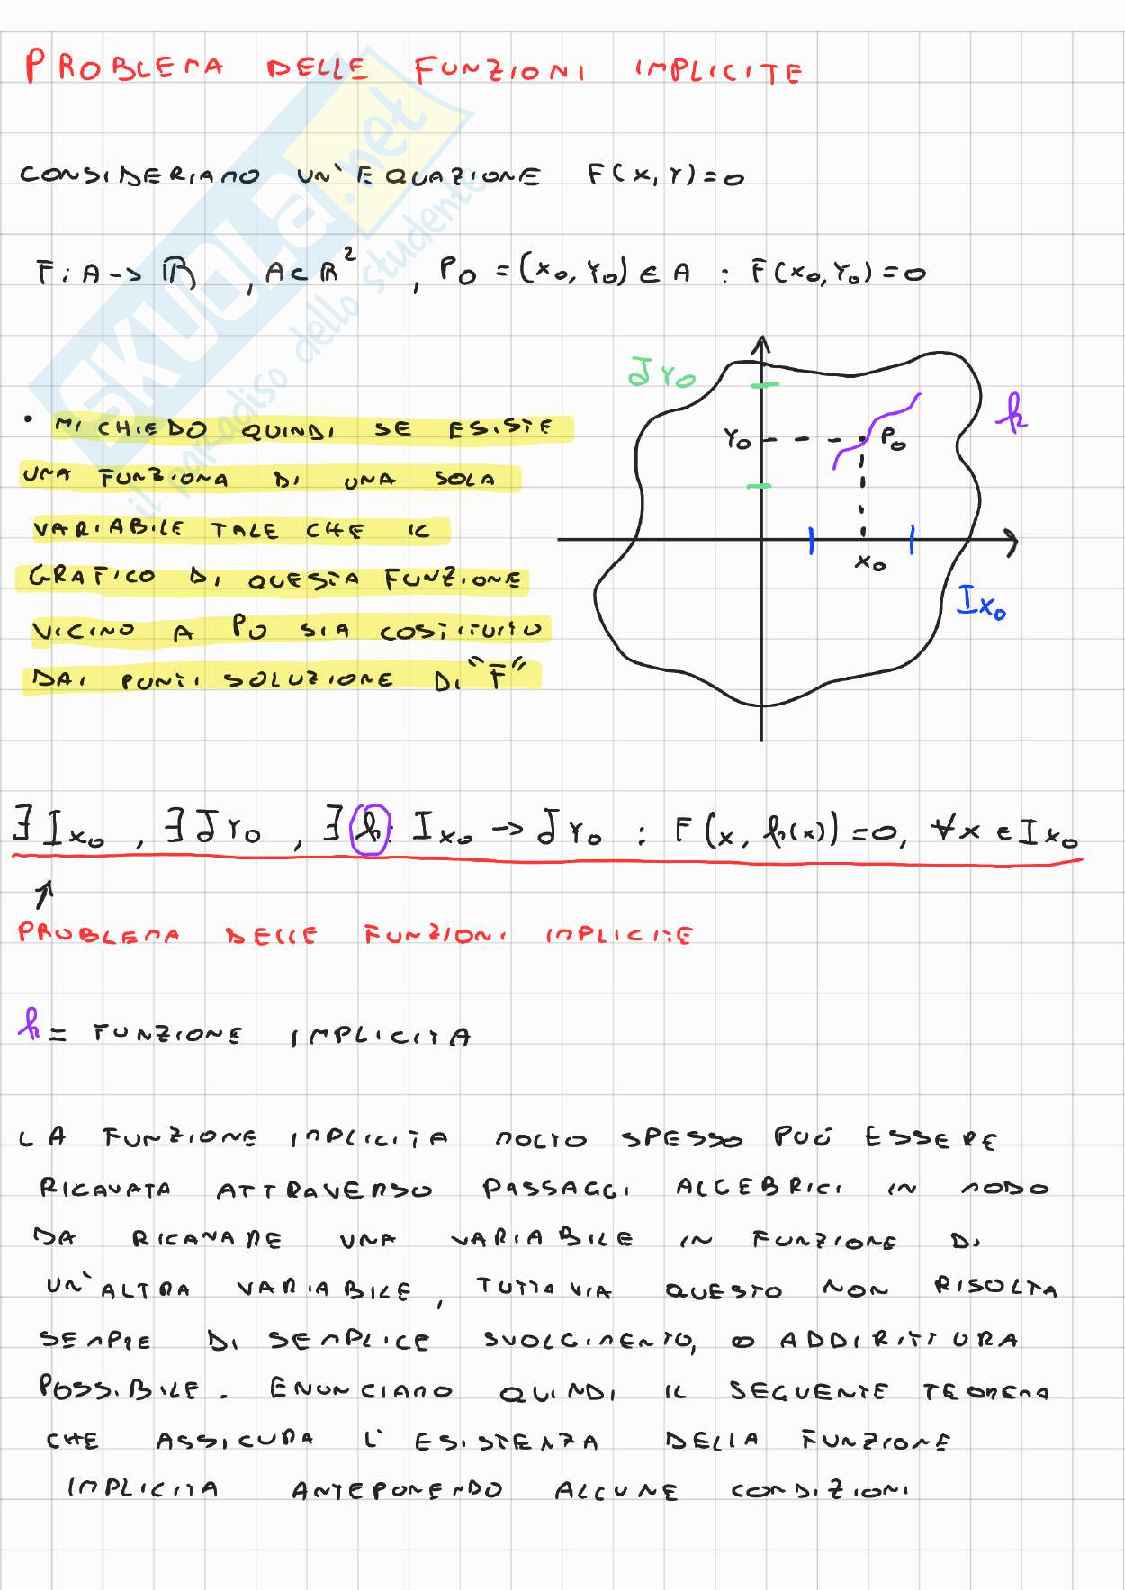 PROBLEMA DELLE FUNZIONI IMPLICITE
CONSIDERIAMO UN'EQUAZIONE F(X,Y)=0
F: A -> ℝ , A⊂ℝ² , P0 = (x0, Y0) ∈ A : F(x0, Y0) = 0
• MI CHIEDO QUINDI SE ESISTE
UNA FUNZIONA DI UNA SOLA
VARIABILE TALE CHE IL
GRAFICO DI QUESTA FUNZIONE
VICINO A P0 SIA COSTITUITO
DAI PUNTI SOLUZIONE DI "F"
JY0
h
Y0
P0
x0
Ix0
∃ Ix0 , ∃ JY0 , ∃ h: Ix0 -> JY0 : F(x, h(x)) = 0, ∀x ∈ Ix0
↑
PROBLEMA DELLE FUNZIONI IMPLICITE
h = FUNZIONE IMPLICITA
LA FUNZIONE IMPLICITA MOLTO SPESSO PUÓ ESSERE
RICAVATA ATTRAVERSO PASSAGGI ALGEBRICI IN MODO
DA RICAVARE UNA VARIABILE IN FUNZIONE DI
UN'ALTRA VARIABILE, TUTTAVIA QUESTO NON RISOLTA
SEMPRE DI SEMPLICE SVOLGIMENTO, O ADDIRITTURA
POSSIBILE. ENUNCIAMO QUINDI IL SEGUENTE TEOREMA
CHE ASSICURA L'ESISTENZA DELLA FUNZIONE
IMPLICITA ANTEPONENDO ALCUNE CONDIZIONI
SKUOLA.net
il paradiso dello studente